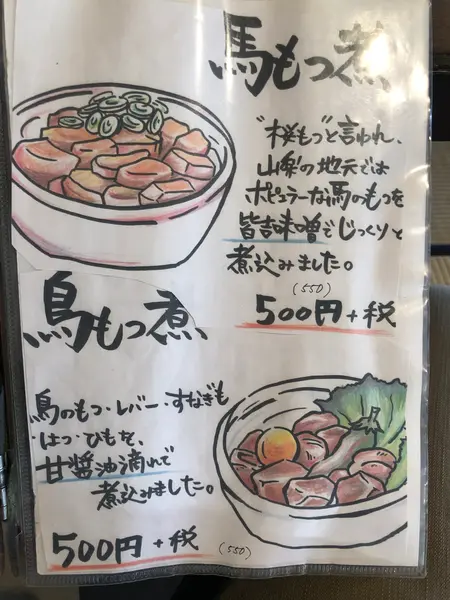 馬もつ煮
"桜もつ"と言われ、
山梨の地元では
ポピュラーな馬のもつを
皆吉味噌でじっくりと
煮込みました。
(550)
500円+税
鳥もつ煮
鳥のもつ・レバー・すなぎも
はつ・ひもを、
甘醤油滴れで
煮込みました。
500円+税
(550)